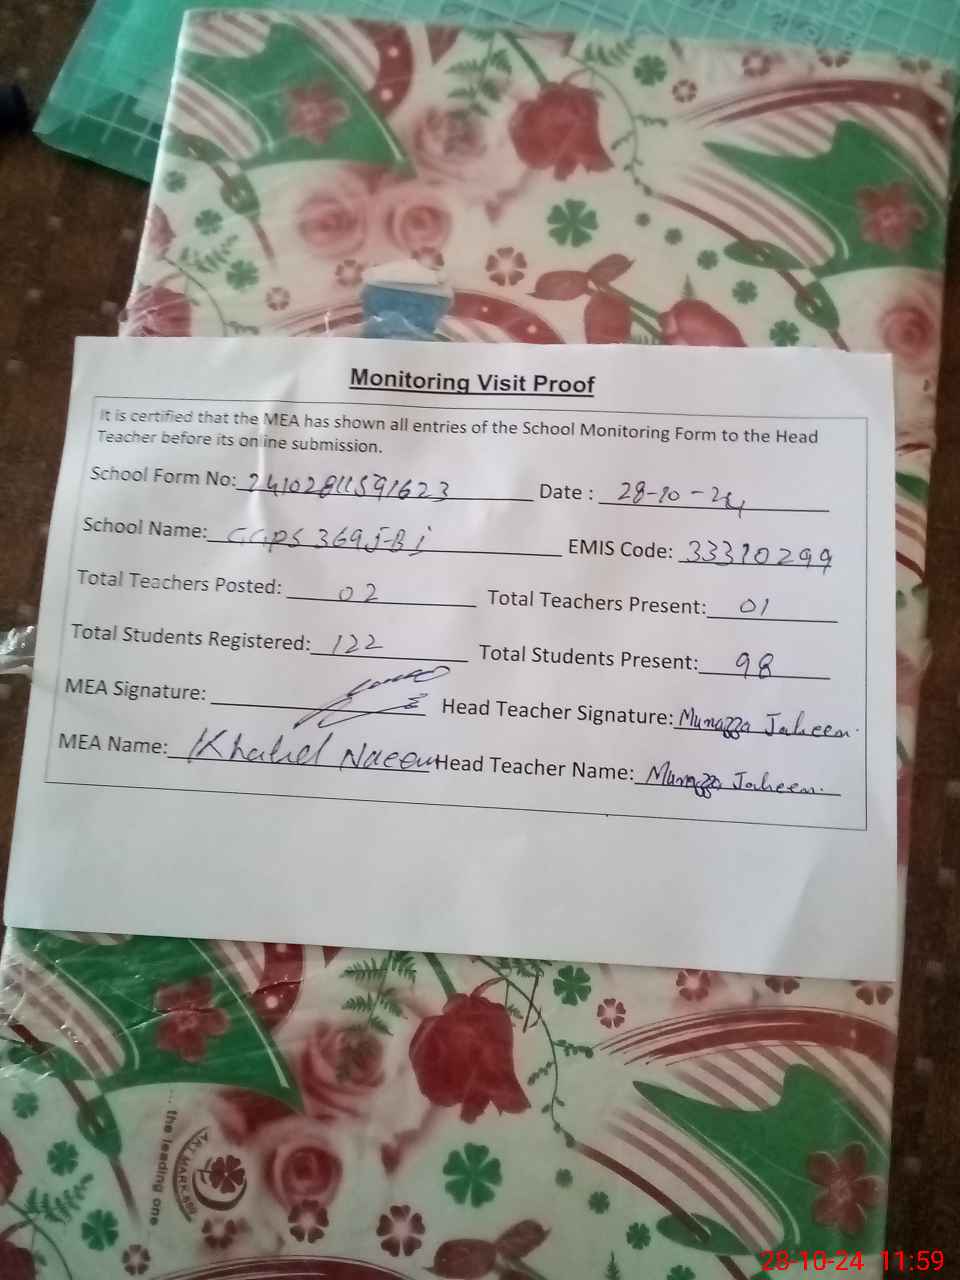 Monitoring Visit Proof
It is certified that the MEA has shown all entries of the School Monitoring Form to the Head
Teacher before its online submission.
School Form No: 24102811591623 Date : 28-10-24
School Name: GGPS 369 J-B i EMIS Code: 33310299
Total Teachers Posted: 02 Total Teachers Present: 01
Total Students Registered: 122 Total Students Present: 98
MEA Signature: Head Teacher Signature: Munazza Jabeen.
MEA Name: Khalid Naeem Head Teacher Name: Munazza Jabeen.
... the leading one
ART MARK
28-10-24 11:59